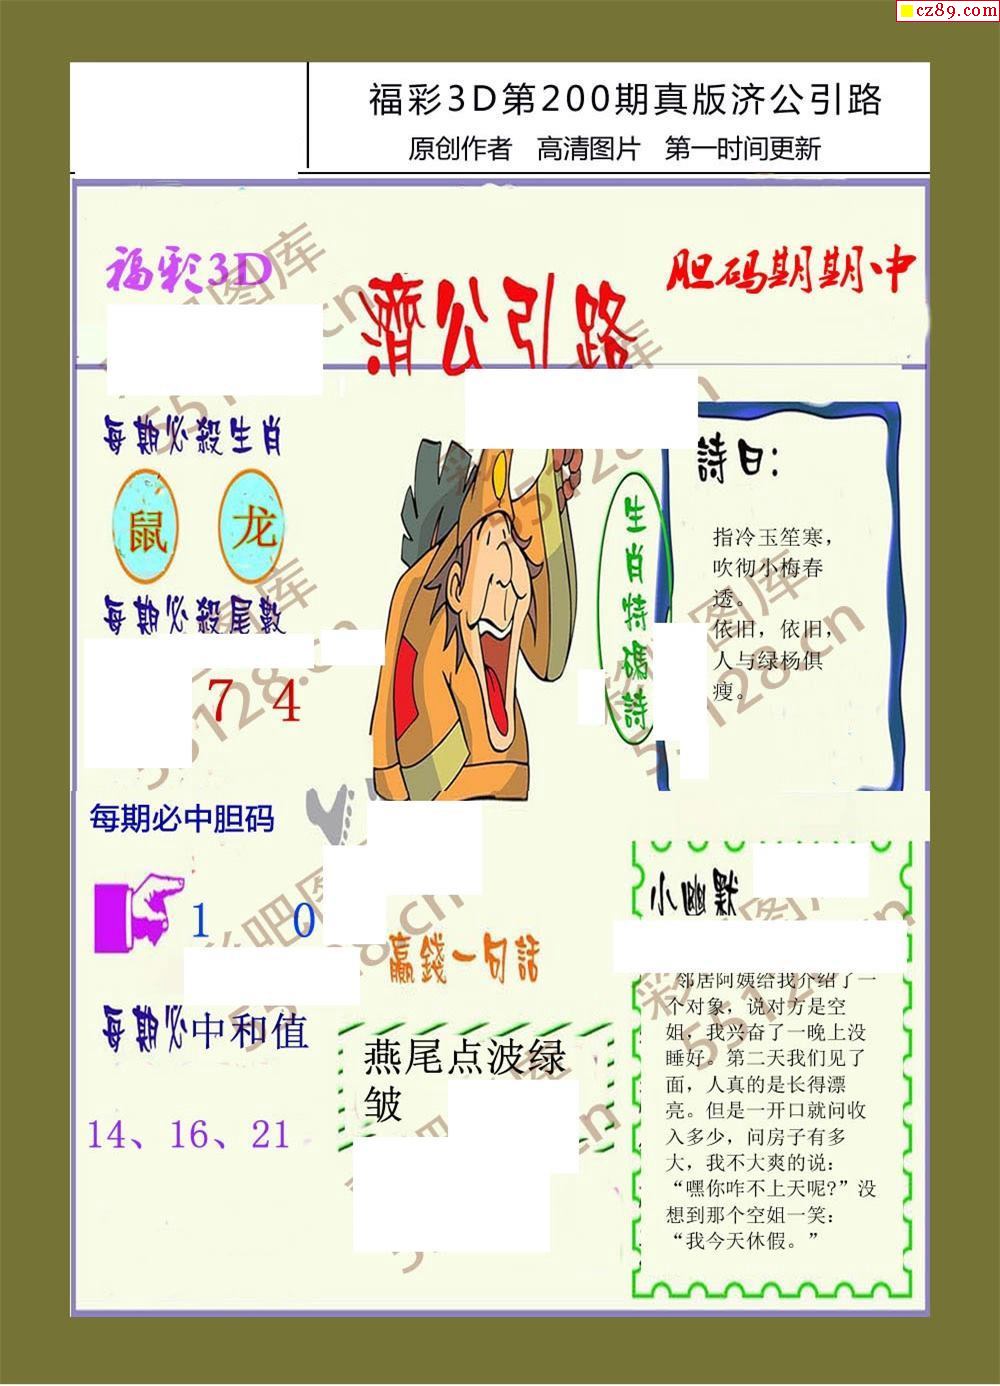 cz89.com
福彩3D第200期真版济公引路
原创作者 高清图片 第一时间更新
福彩3D
濟公引路
胆码期期中
每期必殺生肖
鼠 龙
每期必殺尾數
7 4
每期必中胆码
1 0
每期必中和值
14、16、21
生肖特碼詩
詩曰:
指冷玉笙寒，
吹彻小梅春
透。
依旧，依旧，
人与绿杨俱
瘦。
贏錢一句話
燕尾点波绿
皱
小幽默
邻居阿姨给我介绍了一
个对象，说对方是空
姐，我兴奋了一晚上没
睡好。第二天我们见了
面，人真的是长得漂
亮。但是一开口就问收
入多少，问房子有多
大，我不大爽的说：
“嘿你咋不上天呢?”没
想到那个空姐一笑：
“我今天休假。”
彩吧图库
55128.cn